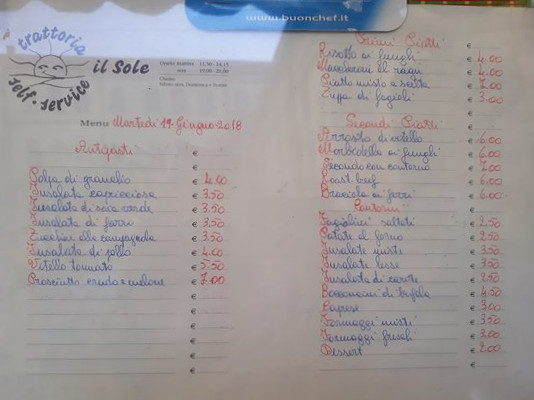 www.buonchef.it
trattoria
il Sole
self-service
Orario mattino 11,30 - 14,15
sera 19,00 - 21,00
Chiuso:
Menu Martedì 19 Giugno 2018
Antipasti €
€
Polpa di granchio € 4.00
Insalata capricciosa € 3.50
Insalata di € 3.50
Insalata di farro € 3.50
Zucchine alla campagnola € 3.50
Insalata di pollo € 4.00
Vitello tonnato € 5.50
Prosciutto crudo e melone € 7.00
€
€
€
€
€
€
Primi Piatti €
Risotto ai funghi € 4.00
Maccheroni al ragù € 4.00
Piatto misto a scelta € 7.00
Zuppa di fagioli € 3.00
€
Secondi Piatti €
Arrosto di vitello € 6.00
ai funghi € 6.00
Secondo con contorno € 7.00
Roast-beef € 6.00
Braciola ai ferri € 6.00
Contorni €
Fagiolini saltati € 2.50
Patate al forno € 2.50
Insalate miste € 3.50
Insalate € 3.50
Insalata di carote € 2.50
Bocconcini di bufala € 4.50
Caprese € 3.00
Formaggi misti € 3.50
Formaggi freschi € 3.00
Dessert € 2.00
€